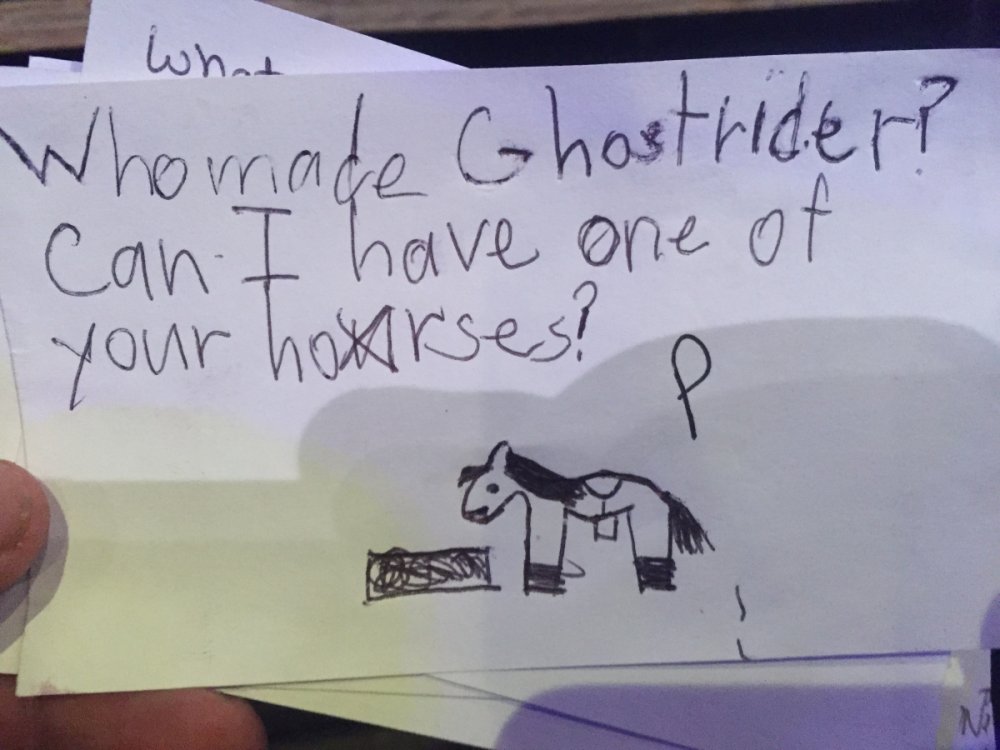 What
Who made Ghostrider?
Can I have one of
your horses?
P